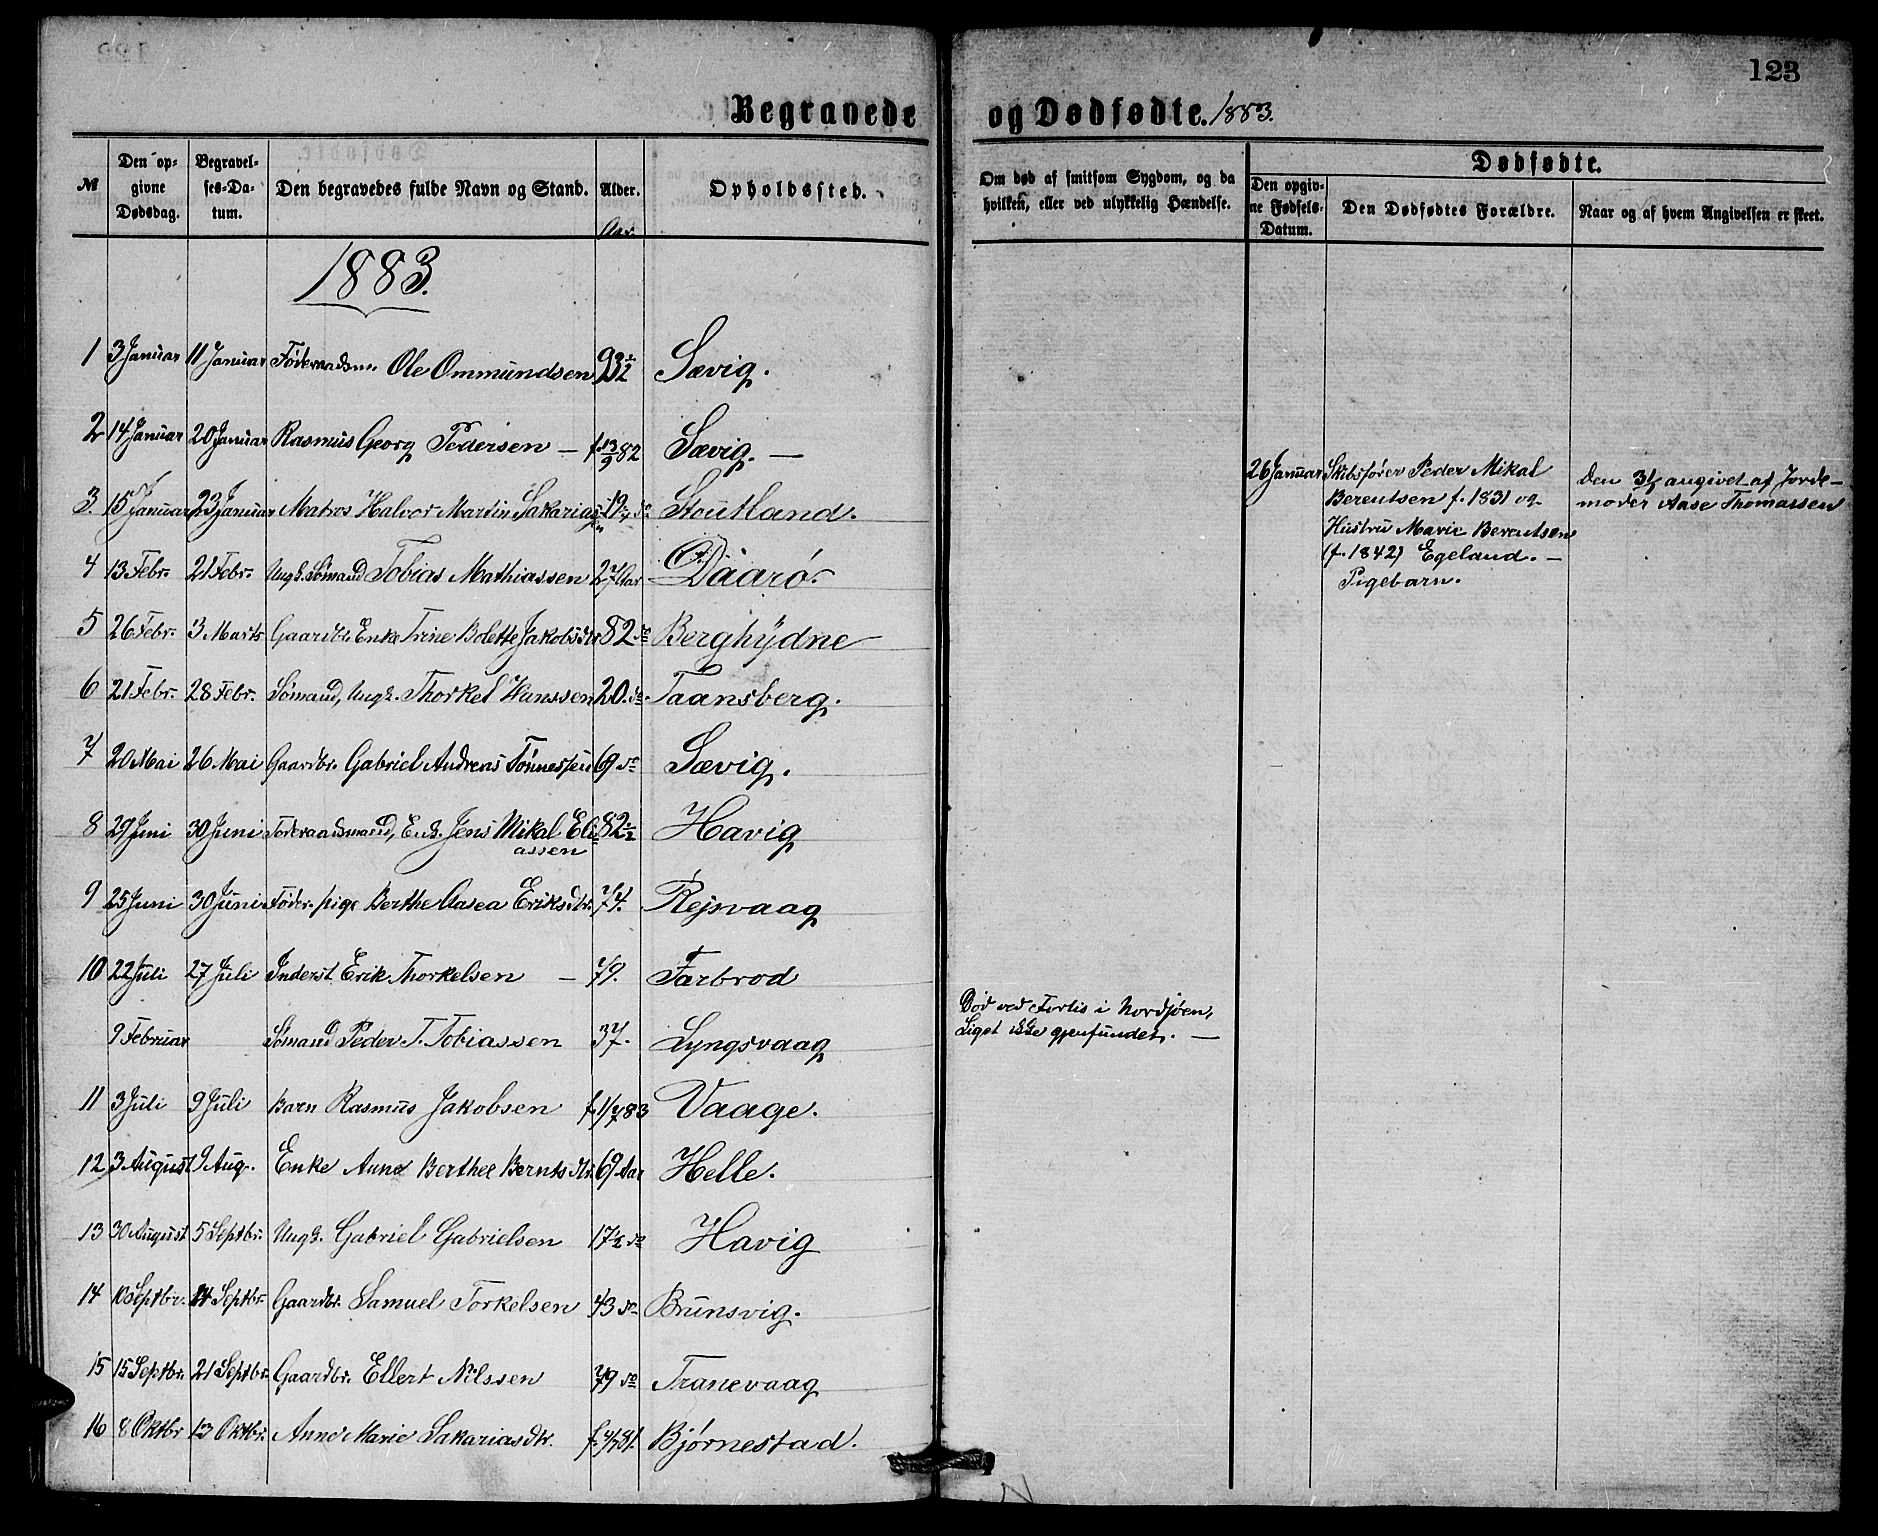 123
Begravede og Dødfødte. 1883.
№
Den opgivne Dødsdag.
Begravelses-Datum.
Den begravedes fulde Navn og Stand.
Alder.
Aar.
Opholdssted.
Om død af smitsom Sygdom, og da hvilken, eller ved ulykkelig Hændelse.
Dødfødte.
Den opgivne Fødsels-Datum.
Den Dødfødtes Forældre.
Naar og af hvem Angivelsen er skeet.
1883.
1 3 Januar 11 Januar Føderaadsm. Ole Ommundsen 93½ Sævig.
2 14 Januar 20 Januar Rasmus Georg Pedersen — f. 13/9 82 Sævig. —
3. 15 Januar 23 Januar Matros Halvor Martin Sakarias- 19 do Stoutland.
4 13 Febr. 21 Febr. Ungk. Sømand Tobias Mathiassen 27 Aar Daarø.
5 26 Febr. 3 Marts Gaardbr. Enke Trine Bolette Jakobsdtr. 82 do Berghydne
6 21 Febr. 28 Febr. Sømand, Ungk. Thorkel Hanssen 20 do Taansberg.
7 20 Mai 26 Mai Gaardbr. Gabriel Andreas Tønnessen 69 do Sævig.
8 29 Juni 30 Juni Føderaadsmand, Enk. Jens Mikal Eli- 82½ Havig
assen
9 25 Juni 30 Juni Føder. pige Berthe Aasea Eriksdtr. 74. Rejsvaag
10 22 Juli 27 Juli Inderst Erik Thorkelsen — 79. Farbrod
9 Februar Sømand Peder T. Tobiassen 37. Lyngsvaag
11 3 Juli 9 Juli Barn Rasmus Jakobsen f. 1/7 83 Vaage.
12 3 August 9 Aug. Enke Anne Berthee Berntsdtr. 69 Aar Helle.
13 30 August 5 Septbr. Ungk. Gabriel Gabrielsen 17½ do Havig
14 10 Septbr. 14 Septbr. Gaardbr. Samuel Torkelsen 43 do Brunsvig.
15 15 Septbr. 21 Septbr. Gaardbr. Ellert Nilssen 79 do Tranevaag
16 8 Oktbr 13 Oktbr. Anne Marie Sakariasdtr. f. 4/7 81. Bjørnestad.
Død ved Forlis i Nordsjøen,
Liget ikke gjenfundet. —
26 Januar Skibsfører Peder Mikal
Berentsen f. 1831 og
Hustru Marie Berentsen
(f. 1842) Egeland. —
Pigebarn.
den angivet af Jorde-
moder Aase Thomassen